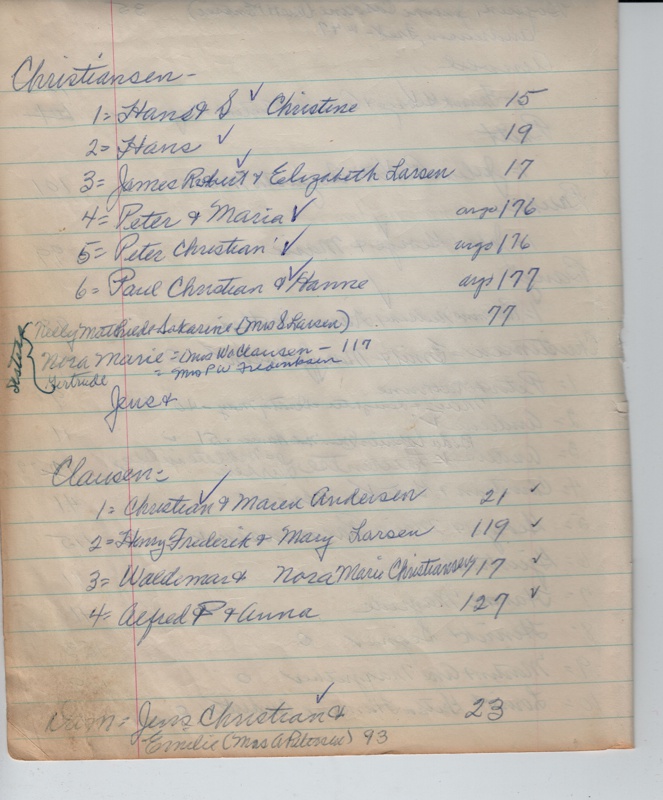 Christiansen -
1 = Hans & S ✓ Christine 15
2 = Hans ✓ 19
3 = James Robert & Elizabeth Larsen 17
4 = Peter & Maria ✓ args 176
5 = Peter Christian ✓ args 176
6 = Paul Christian & Hanne args 177
Nelly Mathilde Sakarine (Mrs S Larsen) 77
Nora Marie = Mrs W Clausen - 117
Gertrude = Mrs P W Frederiksen
Jens &
Clausen =
1 = Christian & Maren Andersen 21 ✓
2 = Henry Frederik & Mary Larsen 119 ✓
3 = Waldemar & Nora Marie Christiansen 117 ✓
4 = Alfred P & Anna 127 ✓
Dam = Jens Christian & 23
Emilie (Mrs A Petersen) 93